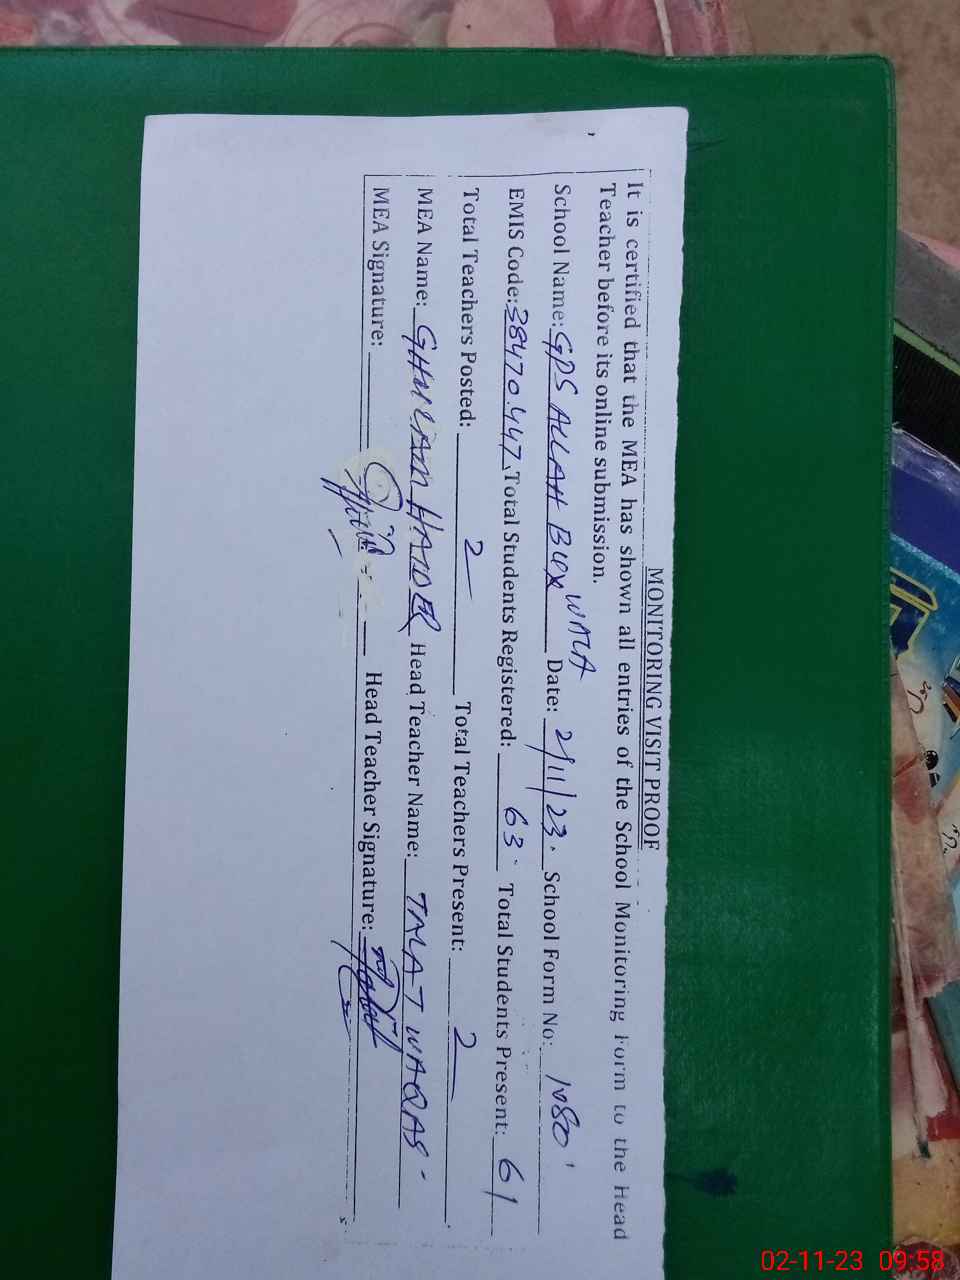 MONITORING VISIT PROOF
It is certified that the MEA has shown all entries of the School Monitoring Form to the Head
Teacher before its online submission.
School Name: GPS ALLAH BUX WALA Date: 2/11/23. School Form No: 1080
EMIS Code: 38470447. Total Students Registered: 63. Total Students Present: 61
Total Teachers Posted: 2 Total Teachers Present: 2
MEA Name: GHULAM HAIDER Head Teacher Name: TALAT WAQAS.
MEA Signature: Head Teacher Signature:
02-11-23 09:58